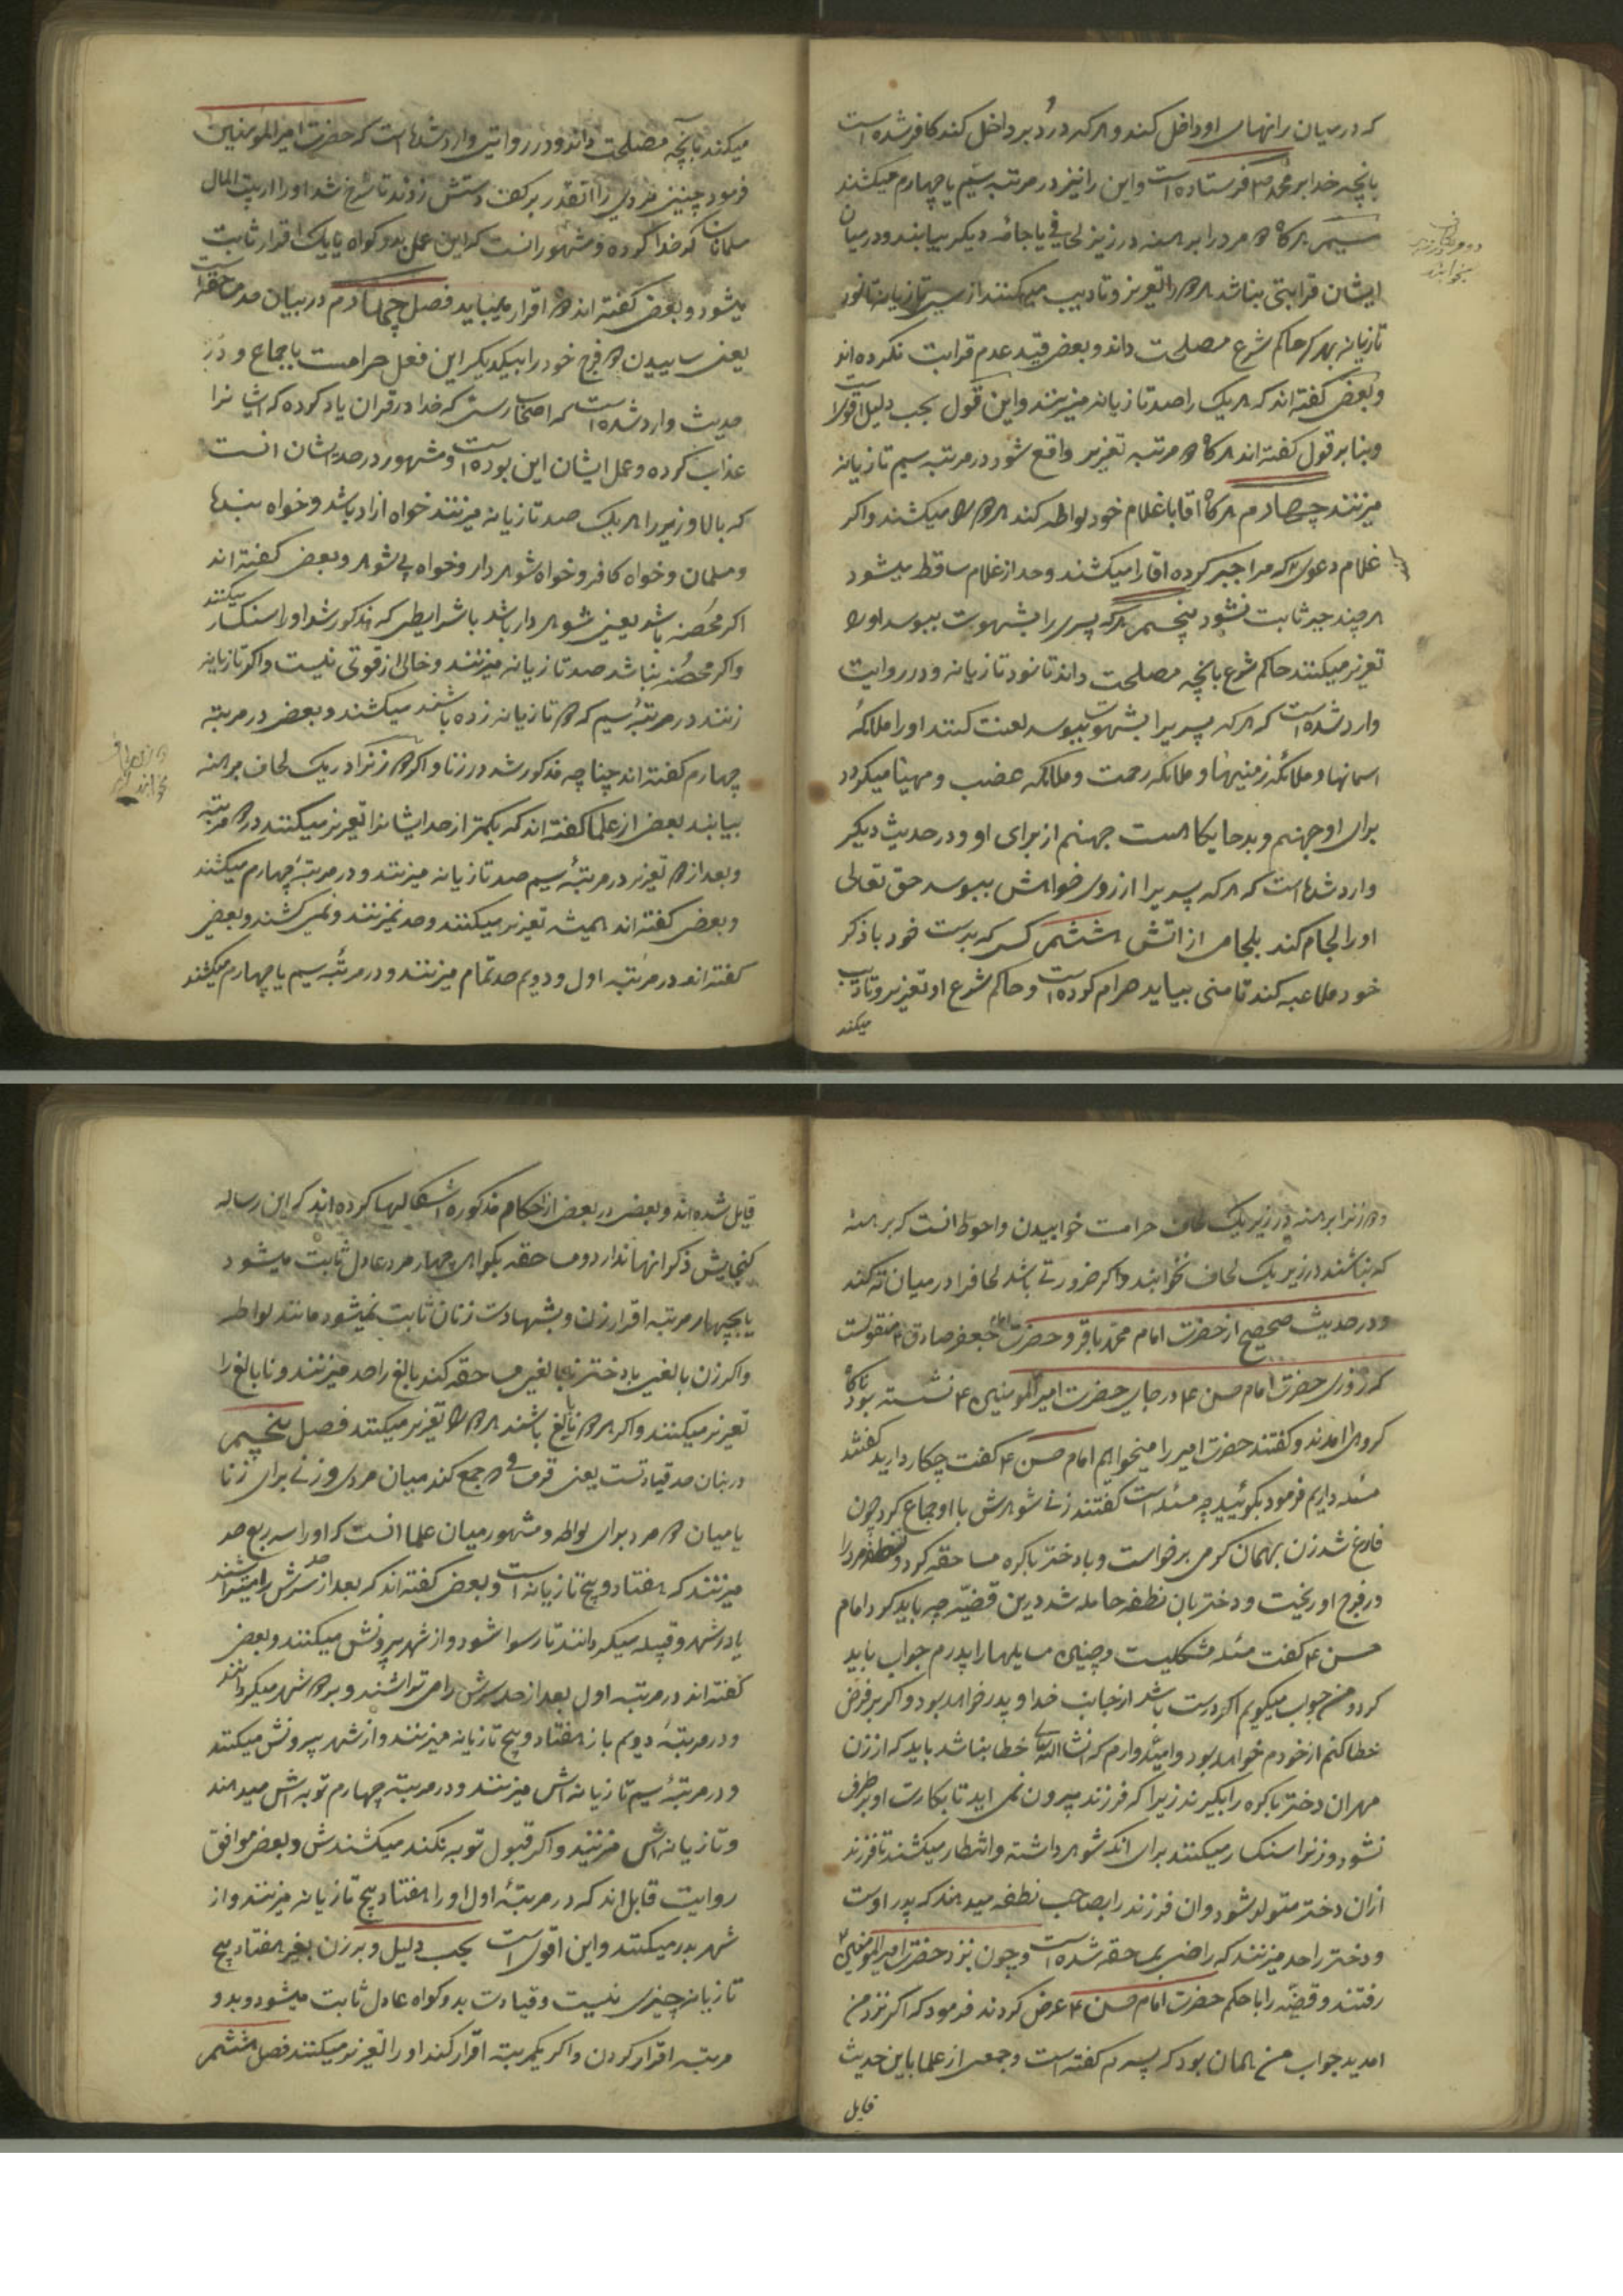 که در میان رانهای او داخل کند و هر که در دبر داخل کند کافر شده است
بانچه خدا بر محمد ص فرستاده است و این را نیز در مرتبه سیم یا چهارم میکشند
سیم هرگاه دو مرد را برهنه در زیر لحافی یا جامه دیگر بیابند و در میان
ایشان قرابتی نباشد هر دو را تعزیر و تادیب میکنند از سی تازیانه تا نود
تازیانه بهر که حاکم شرع مصلحت داند و بعضی قید عدم قرابت نکرده اند
و بعضی گفته اند که هر یک را صد تازیانه میزنند و این قول بحسب دلیل اقوی است
و بنا بر قول گفته اند هرگاه دو مرتبه تعزیر واقع شود در مرتبه سیم تازیانه
میزنند چهارم هرگاه اقا با غلام خود لواطه کند هر دو را میکشند و اگر
غلام دعوی کند که مرا جبر کرده اقا را میکشند و حد از غلام ساقط میشود
هر چند جبر ثابت نشود پنجم هر که پسری را بشهوت ببوسد او را
تعزیر میکنند حاکم شرع بانچه مصلحت داند تا نود تازیانه و در روایت
وارد شده است که هر که پسریرا بشهوت ببوسد لعنت کنند او را ملائکه
اسمانها و ملائکه زمینها و ملائکه رحمت و ملائکه غضب و مهیا میگردد
برای او جهنم و بد جایگاهست جهنم از برای او و در حدیث دیگر
وارد شده است که هر که پسریرا از روی خواهش ببوسد حق تعالی
او را لجام کند بلجامی از اتش ششم کسی که بدست خود با ذکر
خود ملاعبه کند تا منی بیاید حرام کرده است و حاکم شرع او را تعزیر و تادیب
میکند
میکند بانچه مصلحت داند و در روایتی وارد شده است که حضرت امیرالمؤمنین
فرمود چنین مردی را انقدر بر کف دستش زدند تا سرخ شد او را از بیت المال
مسلمانان کدخدا کرده و مشهور انست که این عمل بدو گواه یا یک اقرار ثابت
میشود و بعضی گفته اند دو اقرار میباید فصل چهارم در بیان حد مساحقه است
یعنی ساییدن دو فرج خود را بیکدیگر این فعل حرامست باجماع و در
حدیث وارد شده است که اصحاب رس که خدا در قران یاد کرده که ایشانرا
عذاب کرده و عمل ایشان این بوده است و مشهور در حد ایشان انست
که بالا و زیر را هر یک صد تازیانه میزنند خواه ازاد باشد و خواه بنده
و مسلمان و خواه کافر و خواه شوهر دار و خواه بی شوهر و بعضی گفته اند
اگر محصنه باشد یعنی شوهر دار باشد باشرایطی که مذکور شد او را سنگسار میکنند
و اگر محصنه نباشد صد تازیانه میزنند و خالی از قوتی نیست و اگر تازیانه
زنند در مرتبه سیم که دو تازیانه زده باشند میکشند و بعضی در مرتبه
چهارم گفته اند چنانچه مذکور شد در زنا و اگر دو زنرا در یک لحاف برهنه
بیابند بعضی از علما گفته اند که بکمتر از حد ایشانرا تعزیر میکنند در دو مرتبه
و بعد از دو تعزیر در مرتبه سیم صد تازیانه میزنند و در مرتبه چهارم میکشند
و بعضی گفته اند همیشه تعزیر میکنند و حد نمیزنند و نمی کشند و بعضی
گفته اند در مرتبه اول و دویم حد تمام میزنند و در مرتبه سیم یا چهارم میکشند
و دو زنرا برهنه در زیر یک لحاف حرامست خوابیدن و احوط انست که برهنه
که نباشند در زیر یک لحاف نخوابند و اگر ضرورتی باشد لحافرا در میان ته کنند
و در حدیث صحیح از حضرت امام محمد باقر و حضرت امام جعفر صادق ع منقولست
که روزی حضرت امام حسن ع در جای حضرت امیرالمومنین ع نشسته بود ناگاه
گروهی امدند و گفتند حضرت امیر را میخواهیم امام حسن ع گفت چکار دارید گفتند
مسئله داریم فرمود بگوئید چه مسئله است گفتند زنی شوهرش با او جماع کرد چون
فارغ شد زن بهمان گرمی برخواست و با دختر باکره مساحقه کرد و نطفه مرد را
در فرج او ریخت و دختر بان نطفه حامله شد درین قضیه چه باید کرد امام
حسن ع گفت مسئله مشکلیست و چنین مسایلها را پدرم جواب باید
کرد و من جواب میگویم اگر درست باشد از جانب خدا و پدر خواهد بود و اگر بر فرض
خطا کنم از خودم خواهد بود و امیدوارم که انشاالله تعالی خطا نباشد باید که از زن
مهر ان دختر باکره را بگیرند زیرا که فرزند بیرون نمی اید تا بکارت او بر طرف
نشود و زنرا سنگسار میکنند برای انکه شوهر داشته و انتظار میکشند تا فرزند
از ان دختر متولد شود و ان فرزند را بصاحب نطفه میدهند که پدر اوست
و دختر را حد میزنند که راضی بمساحقه شده است و چون نزد حضرت امیرالمؤمنین ع
رفتند و قضیه را با حکم حضرت امام حسن ع عرض کردند فرمود که اگر نزد من
امدید جواب من همان بود که پسرم گفته است و جمعی از علما باین حدیث
قایل
قایل شده اند و بعضی در بعضی از احکام مذکوره اشکالها کرده اند که این رساله
گنجایش ذکر انها ندارد و مساحقه بگواهی چهار مرد عادل ثابت میشود
یا بچهار مرتبه اقرار زن و بشهادت زنان ثابت نمیشود مانند لواطه
و اگر زن بالغی با دختر نابالغی مساحقه کند بالغ را حد میزنند و نابالغ را
تعزیر میکنند و اگر هر دو نابالغ باشند هر دو را تعزیر میکنند فصل پنجم
در بیان حد قیادتست یعنی قرمساقی و جمع کند میان مردی و زنی برای زنا
یا میان دو مرد برای لواطه و مشهور میان علما انست که او را سه ربع حد
میزنند که هفتاد و پنج تازیانه است و بعضی گفته اند که بعد از حد سرش را میتراشند
یا در شهر و قبیله میگردانند تا رسوا شود و از شهر بیرونش میکنند و بعضی
گفته اند در مرتبه اول بعد از حد سرش را می تراشند و بر دور شهر میگردانند
و در مرتبه دویم باز هفتاد و پنج تازیانه میزنند و از شهر بیرونش میکنند
و در مرتبه سیم تازیانه اش میزنند و در مرتبه چهارم توبه اش میدهند
و تازیانه اش میزنند و اگر قبول توبه نکند میکشندش و بعضی موافق
روایت قایل اند که در مرتبه اول او را هفتاد پنج تازیانه میزنند و از
شهر بدر میکنند و این اقوی است بحسب دلیل و بر زن بغیر هفتاد پنج
تازیانه چیزی نیست و قیادت بدو گواه عادل ثابت میشود و بدو
مرتبه اقرار کردن و اگر یکمرتبه اقرار کند او را تعزیر میکنند فصل ششم